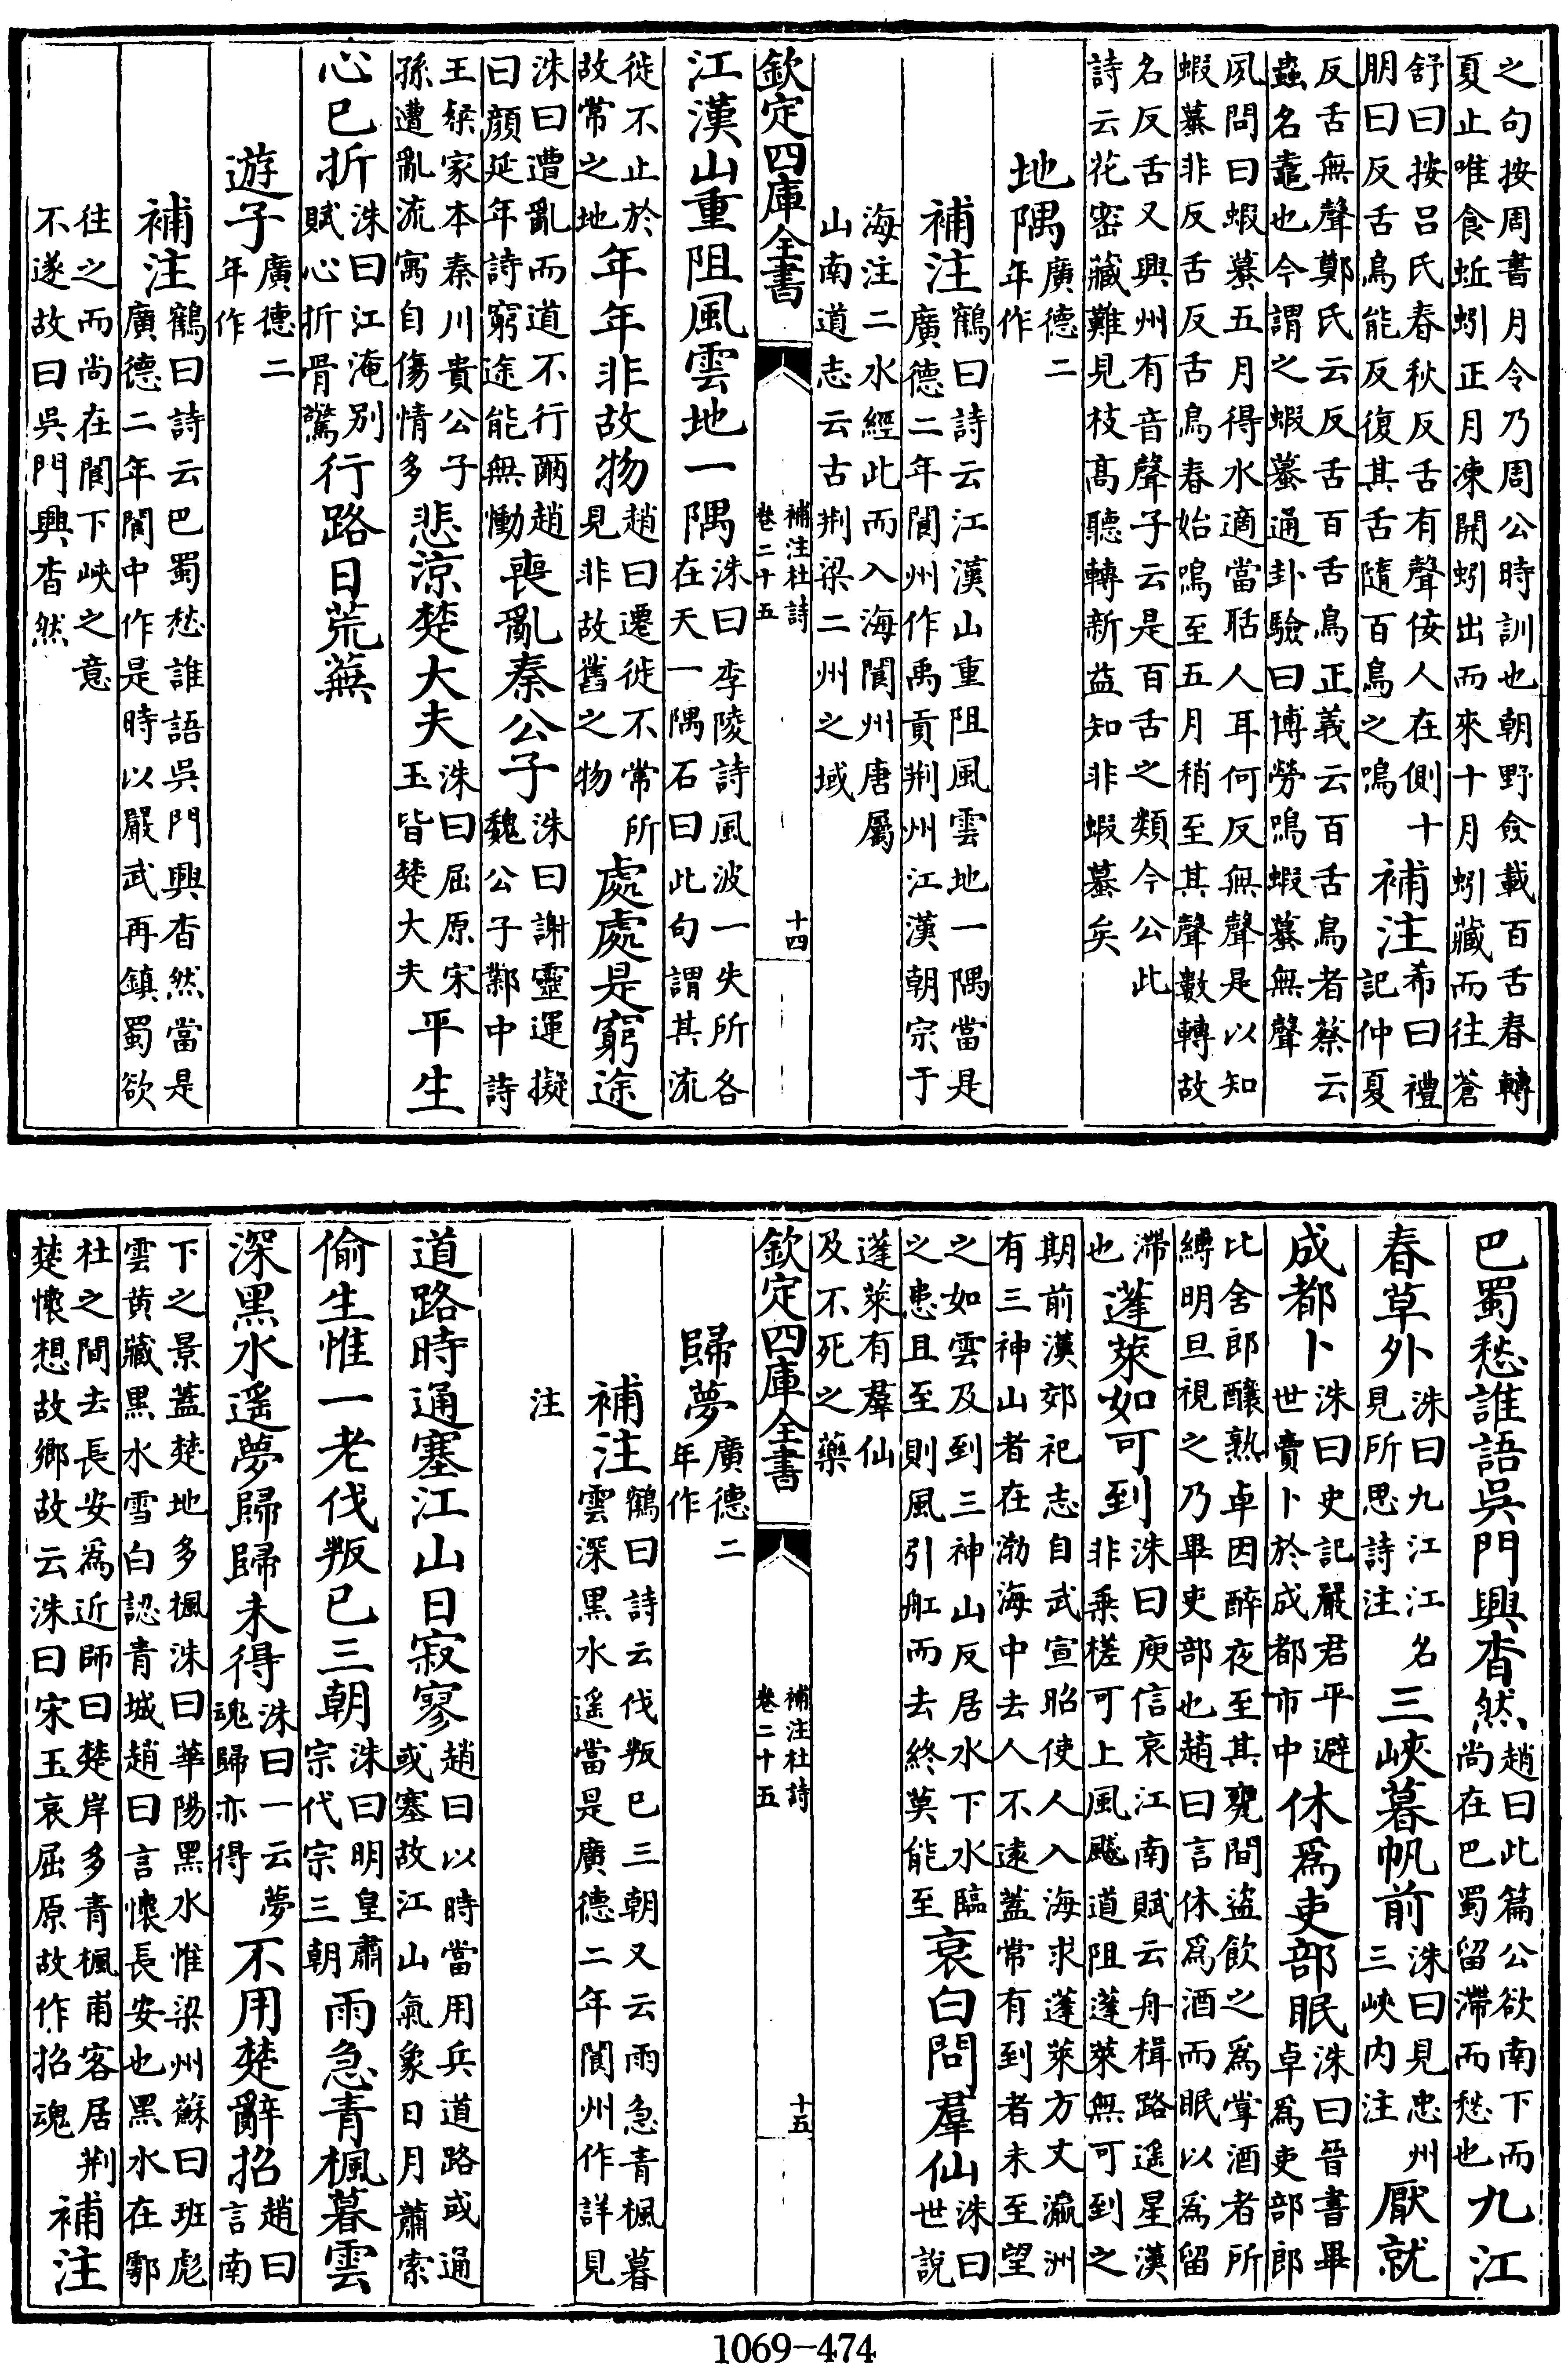 之句按周書月令乃周公時訓也朝野僉載百舌春轉
夏止唯食蚯蚓正月凍開蚓出而來十月蚓藏而往蒼
舒曰按呂氏春秋反舌有聲佞人在側十朋曰反舌鳥能反復其舌隨百鳥之鳴補注希曰禮記仲夏
反舌無聲鄭氏云反舌百舌鳥正義云百舌鳥者蔡云
蟲名鼃也今謂之蝦蟇通卦驗曰博勞鳴蝦蟇無聲
夙問曰蝦蟇五月得水適當聒人耳何反無聲是以知
蝦蟇非反舌反舌鳥春始鳴至五月稍至其聲數轉故
名反舌又興州有音聲子云是百舌之類今公此
詩云花密藏難見枝髙聽轉新益知非蝦蟇矣
地隅廣德二年作
補注鶴曰詩云江漢山重阻風雲地一隅當是廣德二年閬州作禹貢荆州江漢朝宗于
海注二水經此而入海閬州唐屬
山南道志云古荆梁二州之域
欽定四庫全書 補注杜詩卷二十五 十四
江漢山重阻風雲地一隅洙曰李陵詩風波一失所各在天一隅石曰此句謂其流
徙不止於故常之地年年非故物趙曰遷徙不常所見非故舊之物處處是窮途
洙曰遭亂而道不行爾趙曰顔延年詩窮途能無慟喪亂秦公子洙曰謝靈運擬魏公子鄴中詩
王粲家本秦川貴公子孫遭亂流寓自傷情多悲涼楚大夫洙曰屈原宋玉皆楚大夫平生
心已折洙曰江淹别賦心折骨驚行路日荒蕪
遊子廣德二年作
補注鶴曰詩云巴蜀愁誰語吳門興杳然當是廣德二年閬中作是時以嚴武再鎮蜀欲
往之而尚在閬下峽之意
不遂故曰吳門興杳然
巴蜀愁誰語吳門興杳然趙曰此篇公欲南下而尚在巴蜀留滯而愁也九江
春草外洙曰九江江名見所思詩注三峽暮帆前洙曰見忠州三峽内注厭就
成都卜洙曰史記嚴君平避世賣卜於成都市中休爲吏部眠洙曰晉書畢卓爲吏部郎
比舍郎釀熟卓因醉夜至其甕間盜飲之爲掌酒者所
縛明旦視之乃畢吏部也趙曰言休爲酒而眠以爲留
滯也蓬萊如可到洙曰庾信哀江南賦云舟楫路遥星漢非乗槎可上風飈道阻蓬萊無可到之
期前漢郊祀志自武宣昭使人入海求蓬萊方丈瀛洲
有三神山者在渤海中去人不遠蓋常有到者未至望
之如雲及到三神山反居水下水臨之患且至則風引舡而去終莫能至衰白問羣仙洙曰世説
蓬萊有羣仙
及不死之藥
欽定四庫全書 補注杜詩卷二十五 十五
歸夢廣德二年作
補注鶴曰詩云伐叛已三朝又云雨急青楓暮雲深黒水遥當是廣德二年閬州作詳見
注
道路時通塞江山日寂寥趙曰以時當用兵道路或通或塞故江山氣象日月蕭索
偷生惟一老伐叛已三朝洙曰明皇肅宗代宗三朝雨急青楓暮雲
深黒水遥夢歸歸未得洙曰一云夢魂歸亦得不用楚辭招趙曰言南
下之景蓋楚地多楓洙曰華陽黒水惟梁州蘇曰班彪
雲黄藏黒水雪白認青城趙曰言懷長安也黒水在鄠
杜之間去長安爲近師曰楚岸多青楓甫客居荆楚懷想故鄉故云洙曰宋玉哀屈原故作招魂補注
1069-474